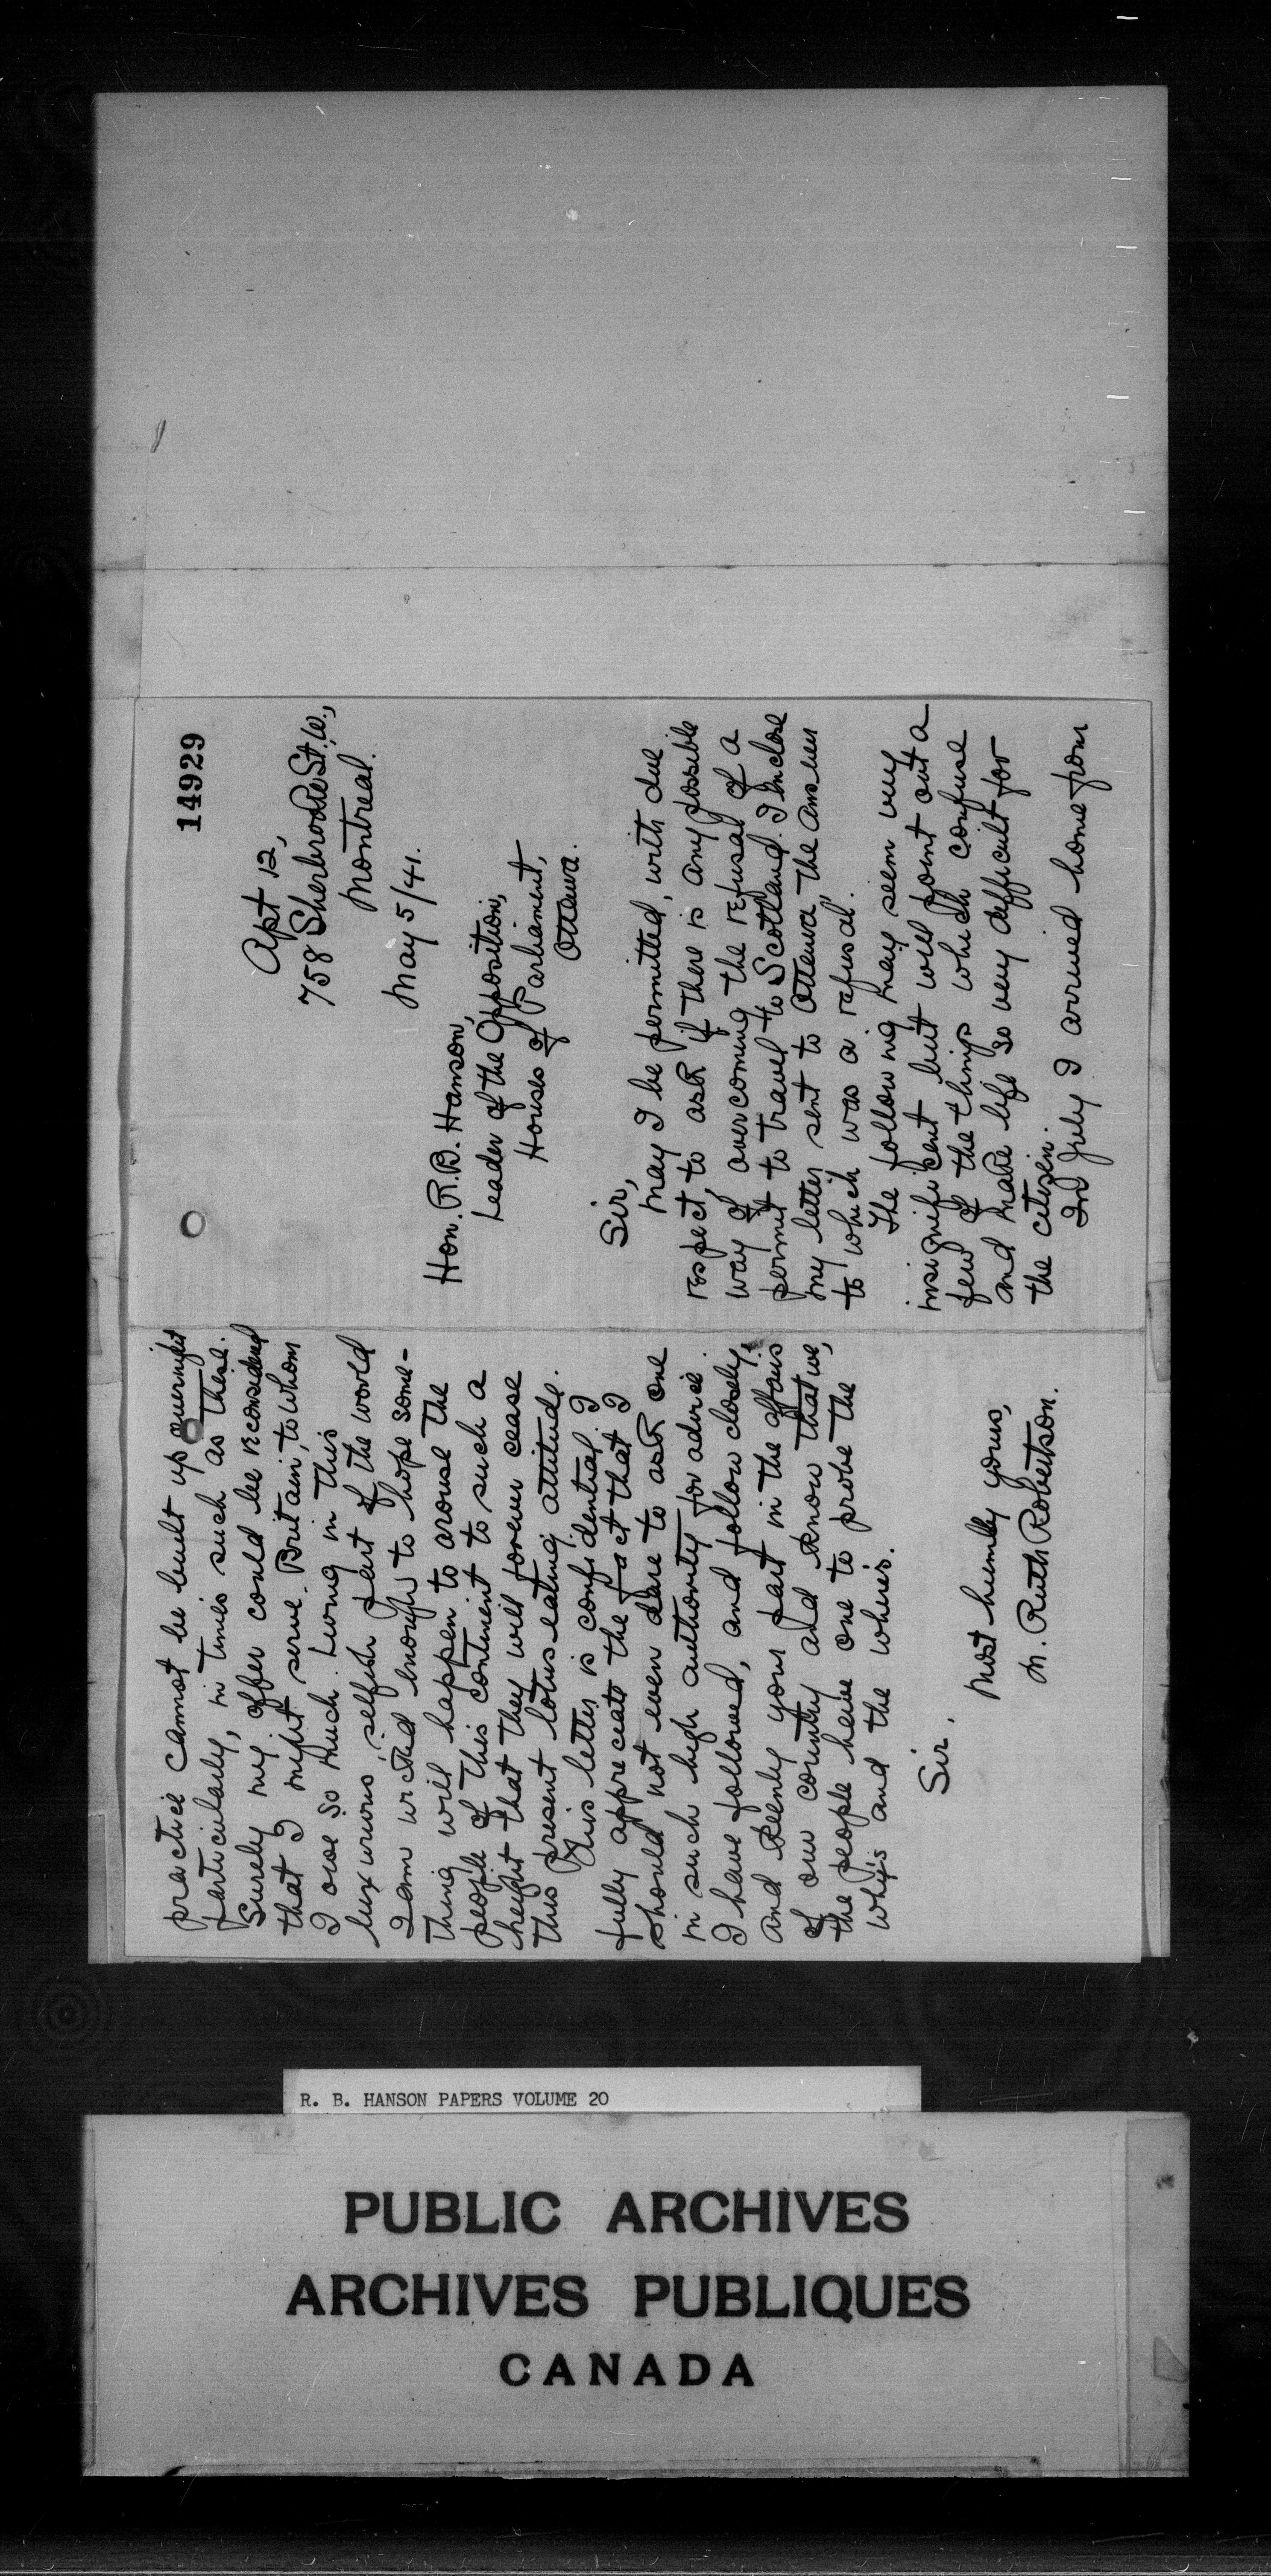 14929
Apt 12,
758 Sherbrooke St. W.,
Montreal.
May 5/41.
Hon. R.B. Hanson,
Leader of the Opposition,
Houses of Parliament,
Ottawa.
Sir,
May I be permitted, with due
respect, to ask if there is any possible
way of overcoming the refusal of a
permit to travel to Scotland. I enclose
my letter sent to Ottawa, the answer
to which was a refusal.
The following may seem very
insignificant but will point out a
few of the things which confuse
and make life so very difficult for
the citizen.
In July I arrived home from
practice cannot be built up overnight
particularly, in times such as these.
Surely my offer could be reconsidered
that I might serve Britain, to whom
I owe so much. Living in this
luxurious, selfish part of the world
I am wicked enough to hope some-
thing will happen to arouse the
people of this continent to such a
height that they will forever cease
this present lotus eating attitude.
This letter is confidential. I
fully appreciate the fact that I
should not even dare to ask one
in such high authority for advice.
I have followed, and follow closely,
and keenly your part in the affairs
of our country and know that we,
the people have one to probe the
why's and the where's.
Sir,
Most humbly yours,
M. Ruth Robertson.
R. B. HANSON PAPERS VOLUME 20
PUBLIC ARCHIVES
ARCHIVES PUBLIQUES
CANADA